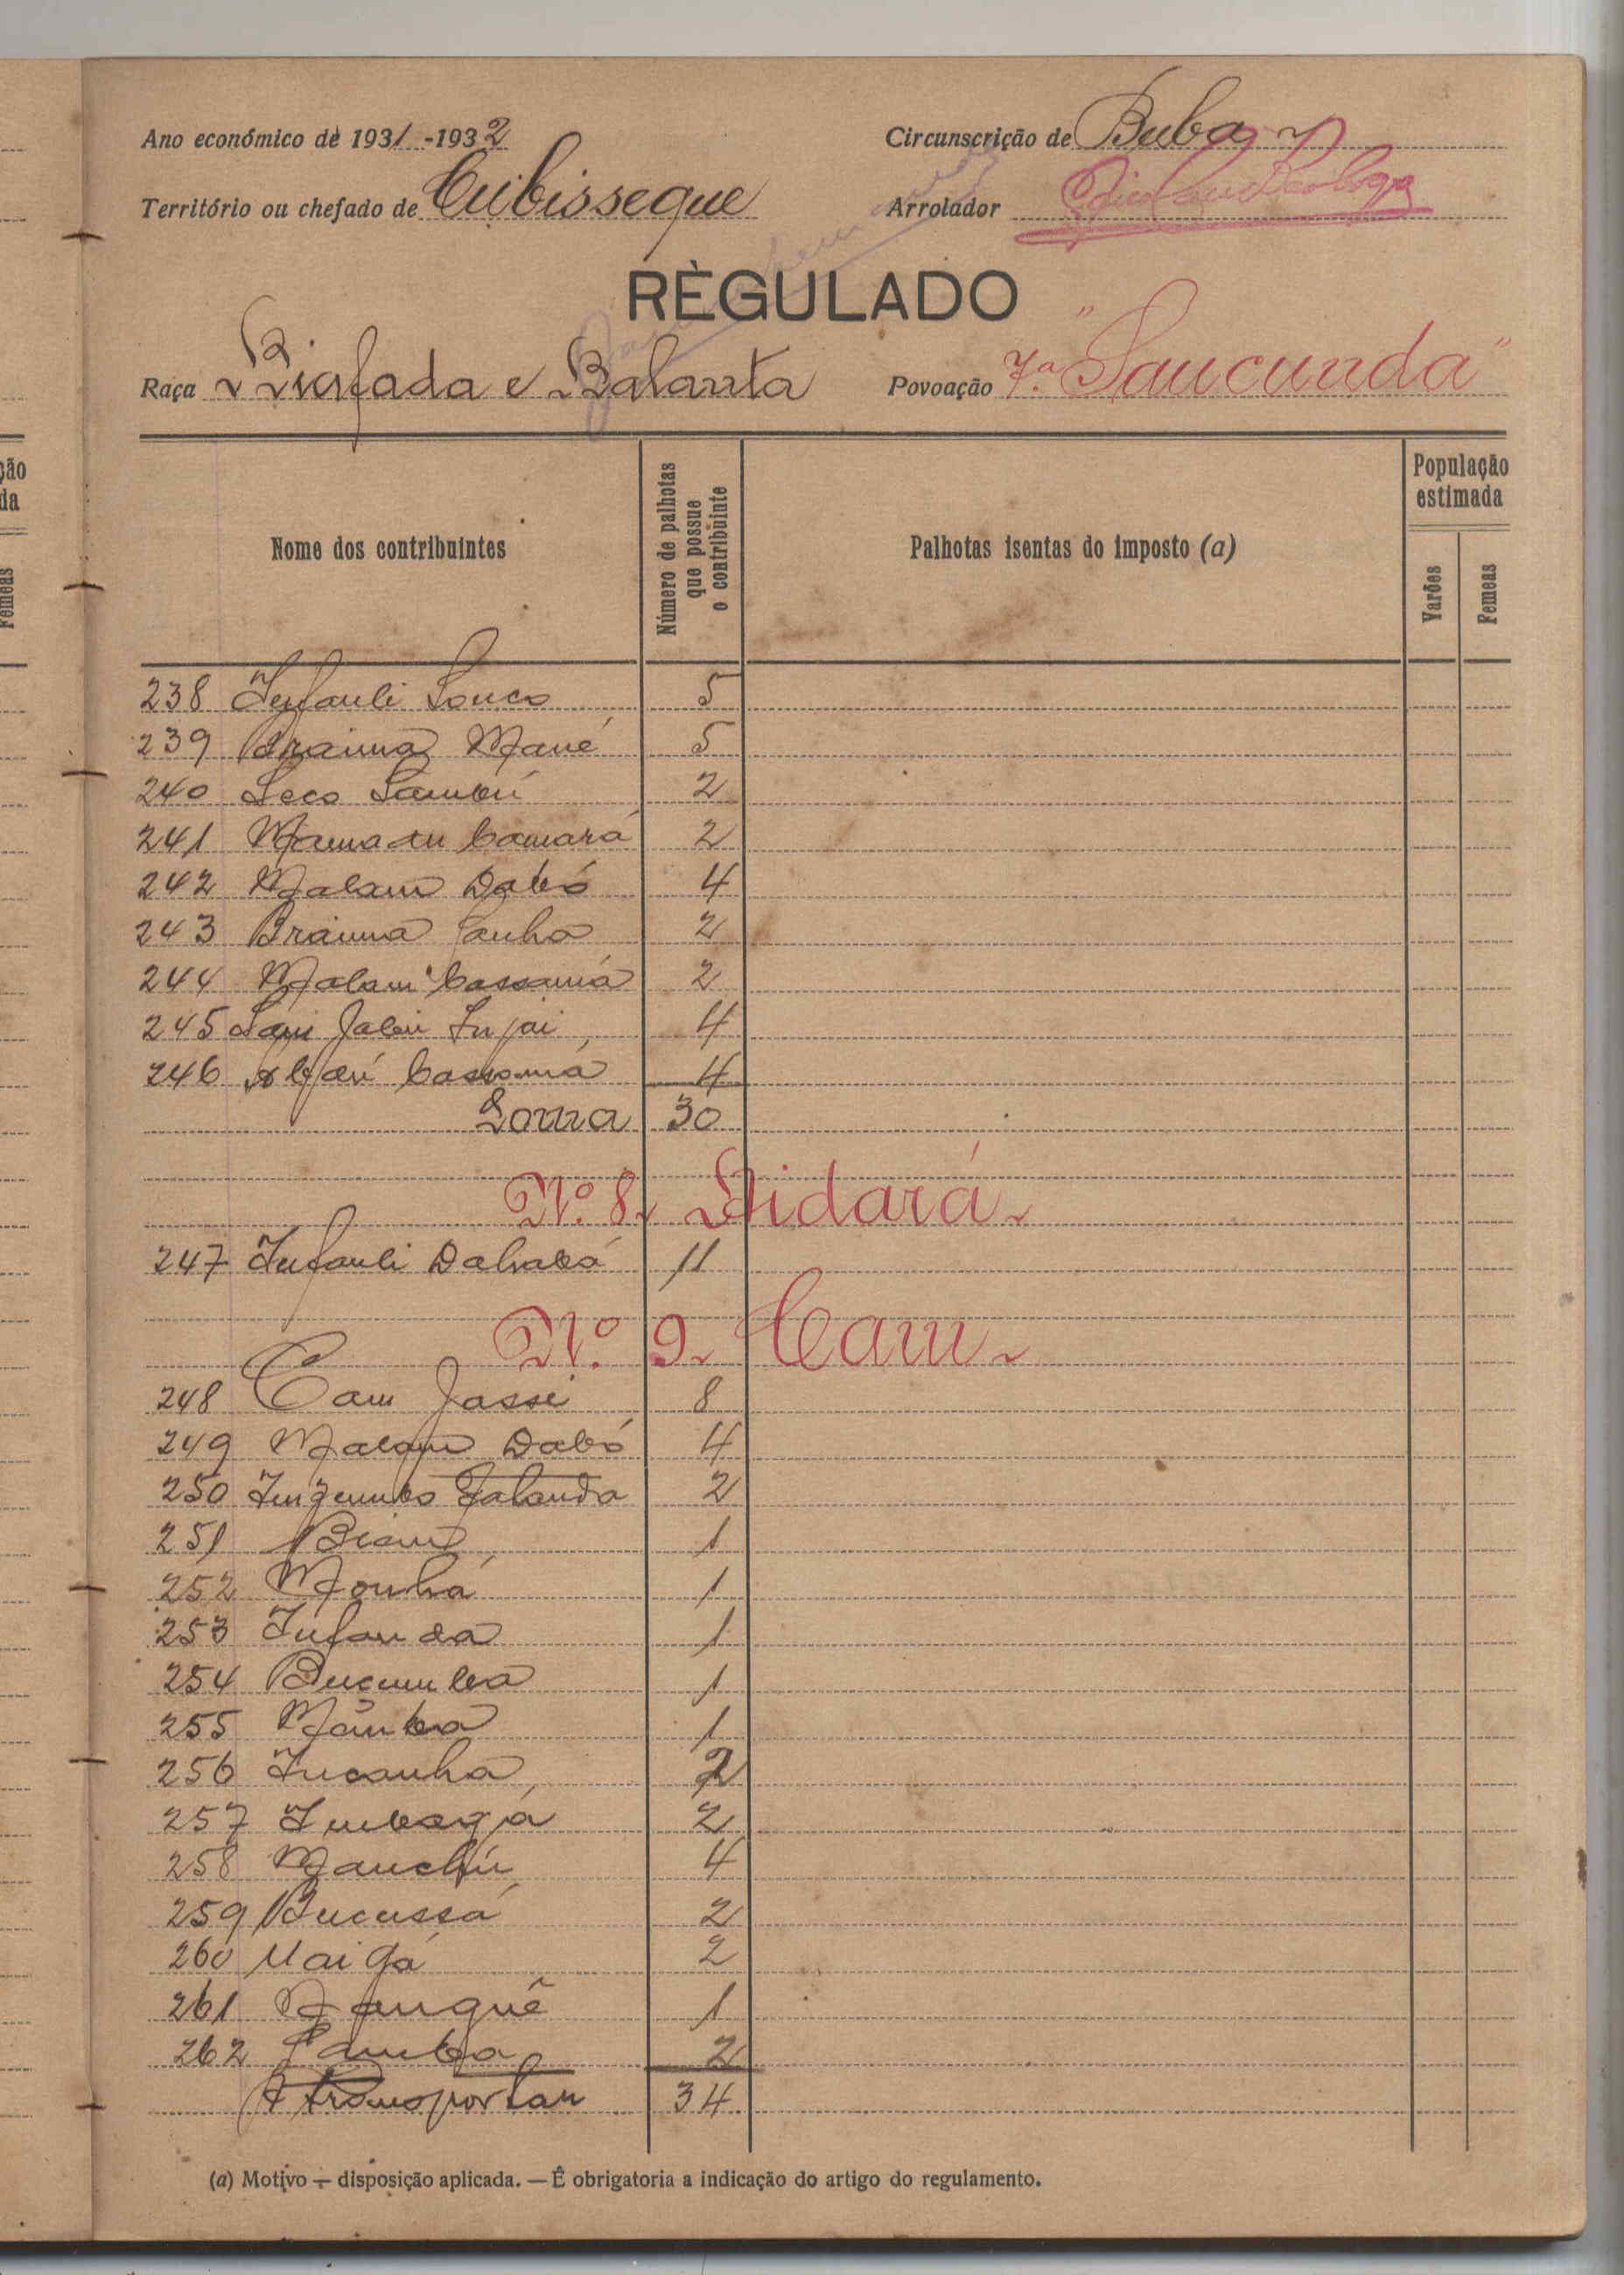 Ano económico de 1931-1932
Circunscrição de Buba
Território ou chefado de Cubisseque
Arrolador
RÈGULADO
Raça Biafada e Balanta
Povoação 7.ª "Saucunda"
ção
da
Femeas
Nome dos contribuintes
Número de palhotas que possue o contribuinte
Palhotas isentas do imposto (a)
População estimada
Varões
Femeas
238 Infauli Souco 5
239 Braima Mané 5
240 Seco Sambú 2
241 Mamadu Camará 2
242 Malam Dabó 4
243 Braima Sanhá 2
244 Malam Cassamá 2
245 Injai 4
246 Cassamá 4
Soma 30
N.º 8. Didará
247 Infauli Dahabá 11
N.º 9. Cam
248 Cam Jassi 8
249 Malam Dabó 4
250 2
251 Biam 1
252 Monhá 1
253 Infanda 1
254 Bucumba 1
255 Mámba 1
256 Incanha 2
257 2
258 Manchú 4
259 Bucussá 2
260 2
261 Nanguê 1
262 Samba 2
A transportar 34
(a) Motivo — disposição aplicada. — Ê obrigatoria a indicação do artigo do regulamento.